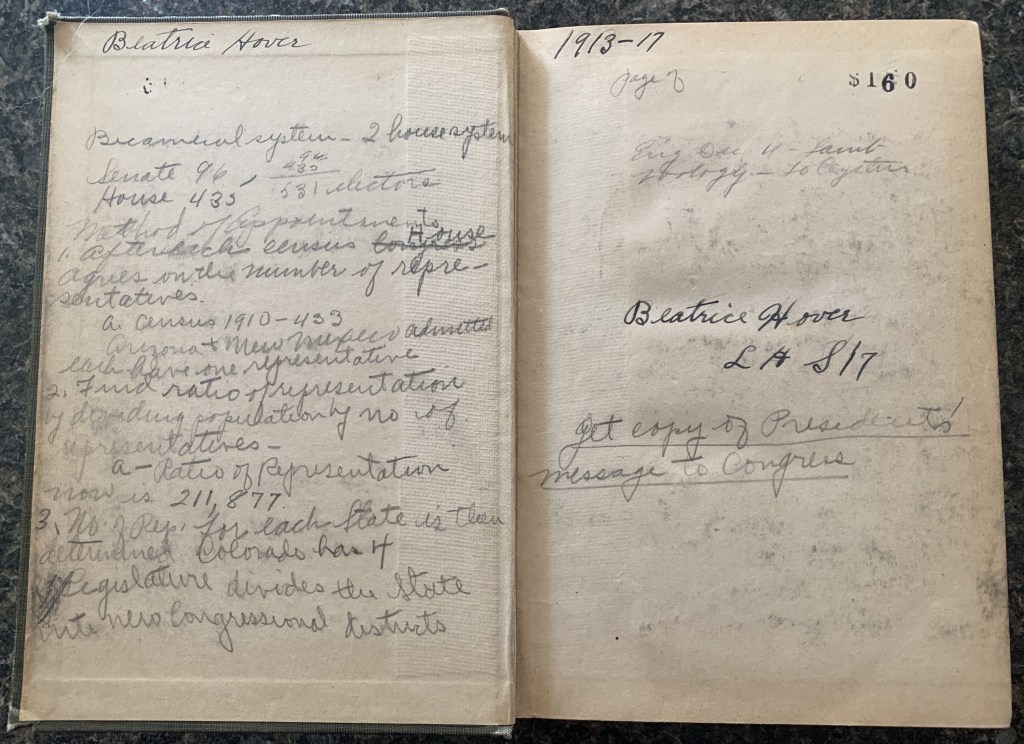 Beatrice Hover
Bicameral system - 2 house system
Senate 96,
House 435
96
435
531 electors
Method of Appointments
1. After each census Congress House
agrees on the number of repre-
sentatives.
a. census 1910-433
Arizona + New Mexico admitted
each have one representative
2. Find ratio of representation
by dividing population by no of
representatives -
a - Ratio of Representation
now is 211,877.
3. No. of Rep. for each State is then
determined Colorado has 4
Legislature divides the State
into new Congressional districts
1913-17
page
$160
Eng Dec. 4 -
Beatrice Hover
L H S/17
Get copy of Presidents'
message to Congress